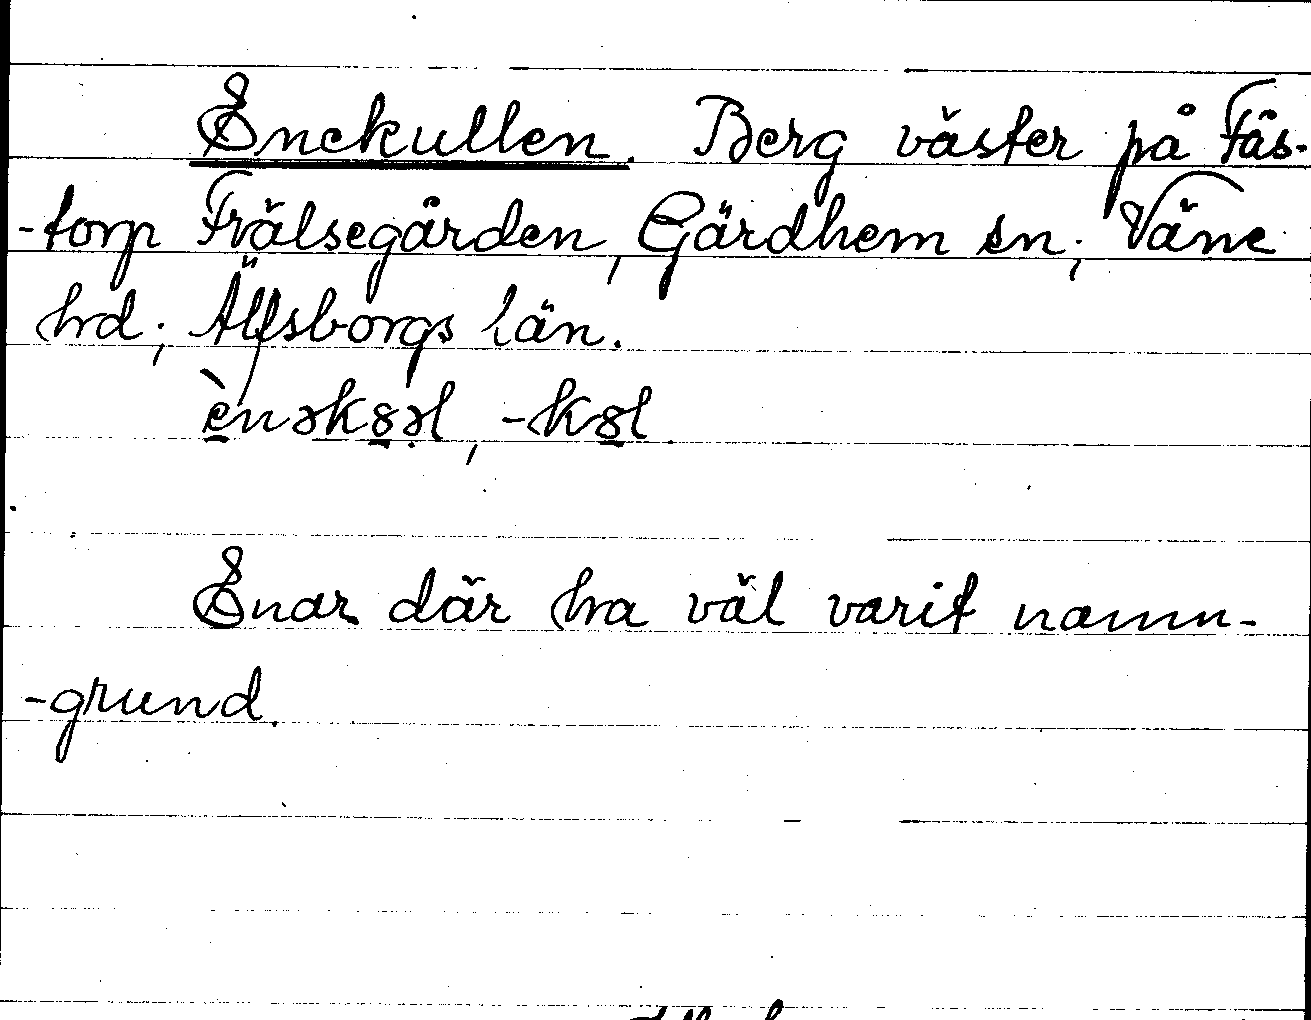 Enekullen. Berg väster på Fäs-
-torp Frälsegården, Gärdhem sn; Väne
hd; Älfsborgs län.
ènəks̲ə̣l, -ks̲l
Enar där ha väl varit namn-
-grund.